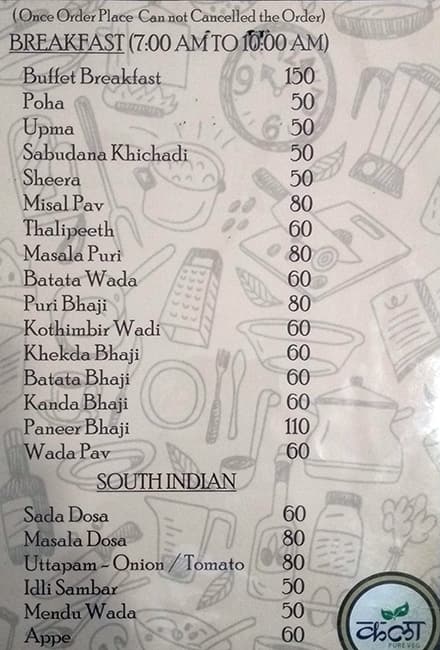 ( Once Order Place Can not Cancelled the Order)
BREAKFAST (7:00 AM TO 10:00 AM)
Buffet Breakfast 150
Poha 50
Upma 50
Sabudana Khichadi 50
Sheera 50
Misal Pav 80
Thalipeeth 60
Masala Puri 80
Batata Wada 60
Puri Bhaji 80
Kothimbir Wadi 60
Khekda Bhaji 60
Batata Bhaji 60
Kanda Bhaji 60
Paneer Bhaji 110
Wada Pav 60
SOUTH INDIAN
Sada Dosa 60
Masala Dosa 80
Uttapam - Onion / Tomato 80
Idli Sambar 50
Mendu Wada 50
Appe 60
PURE VEG